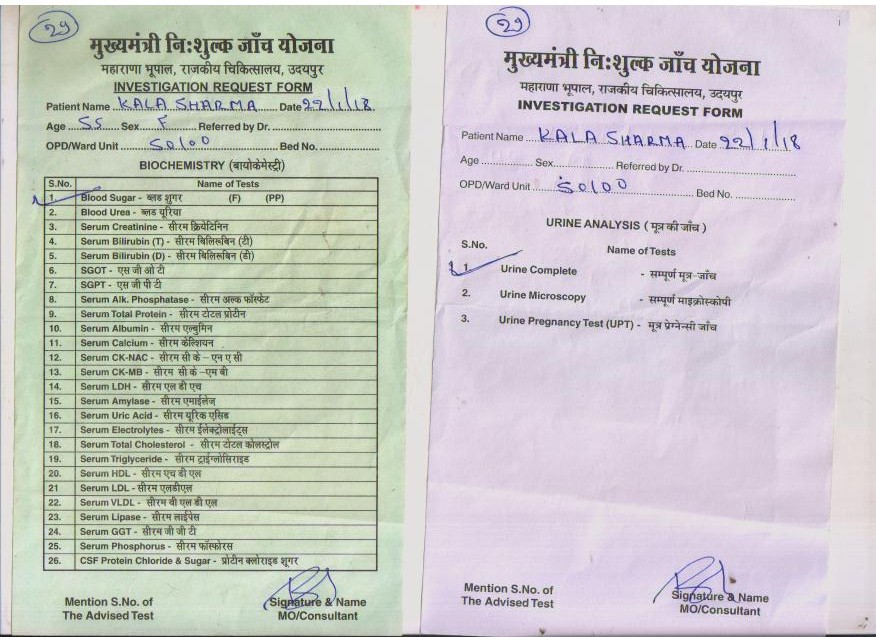 29
मुख्यमंत्री नि:शुल्क जाँच योजना
महाराणा भूपाल, राजकीय चिकित्सालय, उदयपुर
INVESTIGATION REQUEST FORM
Patient Name ....KALA SHARMA.... Date 22/1/18
Age ....SS.... Sex....F.... Referred by Dr. ................
OPD/Ward Unit ....50100.... Bed No. ................
BIOCHEMISTRY (बायोकेमेस्ट्री)
S.No. Name of Tests
1. Blood Sugar - ब्लड शुगर (F) (PP)
2. Blood Urea - ब्लड यूरिया
3. Serum Creatinine - सीरम क्रियेटिनिन
4. Serum Bilirubin (T) - सीरम बिलिरूबिन (टी)
5. Serum Bilirubin (D) - सीरम बिलिरूबिन (डी)
6. SGOT - एस जी ओ टी
7. SGPT - एस जी पी टी
8. Serum Alk. Phosphatase - सीरम अल्क फॉस्फेट
9. Serum Total Protein - सीरम टोटल प्रोटीन
10. Serum Albumin - सीरम एल्बुमिन
11. Serum Calcium - सीरम केल्शियन
12. Serum CK-NAC - सीरम सी के – एन ए सी
13. Serum CK-MB - सीरम सी के –एम बी
14. Serum LDH - सीरम एल डी एच
15. Serum Amylase - सीरम एमाईलेज्
16. Serum Uric Acid - सीरम यूरिक एसिड
17. Serum Electrolytes - सीरम ईलेक्ट्रोलाईट्स
18. Serum Total Cholesterol - सीरम टोटल कोलस्ट्रोल
19. Serum Triglyceride - सीरम ट्राईग्लोसिराइड
20. Serum HDL - सीरम एच डी एल
21 Serum LDL - सीरम एलडीएल
22. Serum VLDL - सीरम वी एल डी एल
23. Serum Lipase - सीरम लाईपेस
24. Serum GGT - सीरम जी जी टी
25. Serum Phosphorus - सीरम फॉस्फोरस
26. CSF Protein Chloride & Sugar - प्रोटीन क्लोराइड शूगर
Mention S.No. of Signature & Name
The Advised Test MO/Consultant
29
मुख्यमंत्री नि:शुल्क जाँच योजना
महाराणा भूपाल, राजकीय चिकित्सालय, उदयपुर
INVESTIGATION REQUEST FORM
Patient Name ....KALA SHARMA.... Date 22/1/18
Age ............ Sex............ Referred by Dr. ................
OPD/Ward Unit ....50100.... Bed No. ................
URINE ANALYSIS ( मूत्र की जाँच )
S.No. Name of Tests
1. Urine Complete - सम्पूर्ण मूत्र-जाँच
2. Urine Microscopy - सम्पूर्ण माइक्रोस्कोपी
3. Urine Pregnancy Test (UPT) - मूत्र प्रेग्नेन्सी जाँच
Mention S.No. of Signature & Name
The Advised Test MO/Consultant